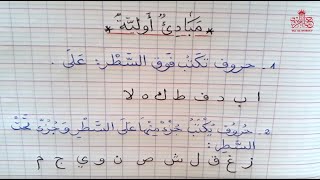 * مَبَادِئُ أَوَّلِيَّةٌ *
1 - حروف تكتبُ فوق السَّطْرِ: عَلَى .
ا ب د ف ط ك ه لا
2 - حُرُوفٌ يُكْتَبُ جُزْءٌ مِنْهَا عَلَى السَّطْرِ وَجُزْءٌ تَحْتَ
السَّطْرِ :
ز غ ق ل ش ص ن و ي ج م